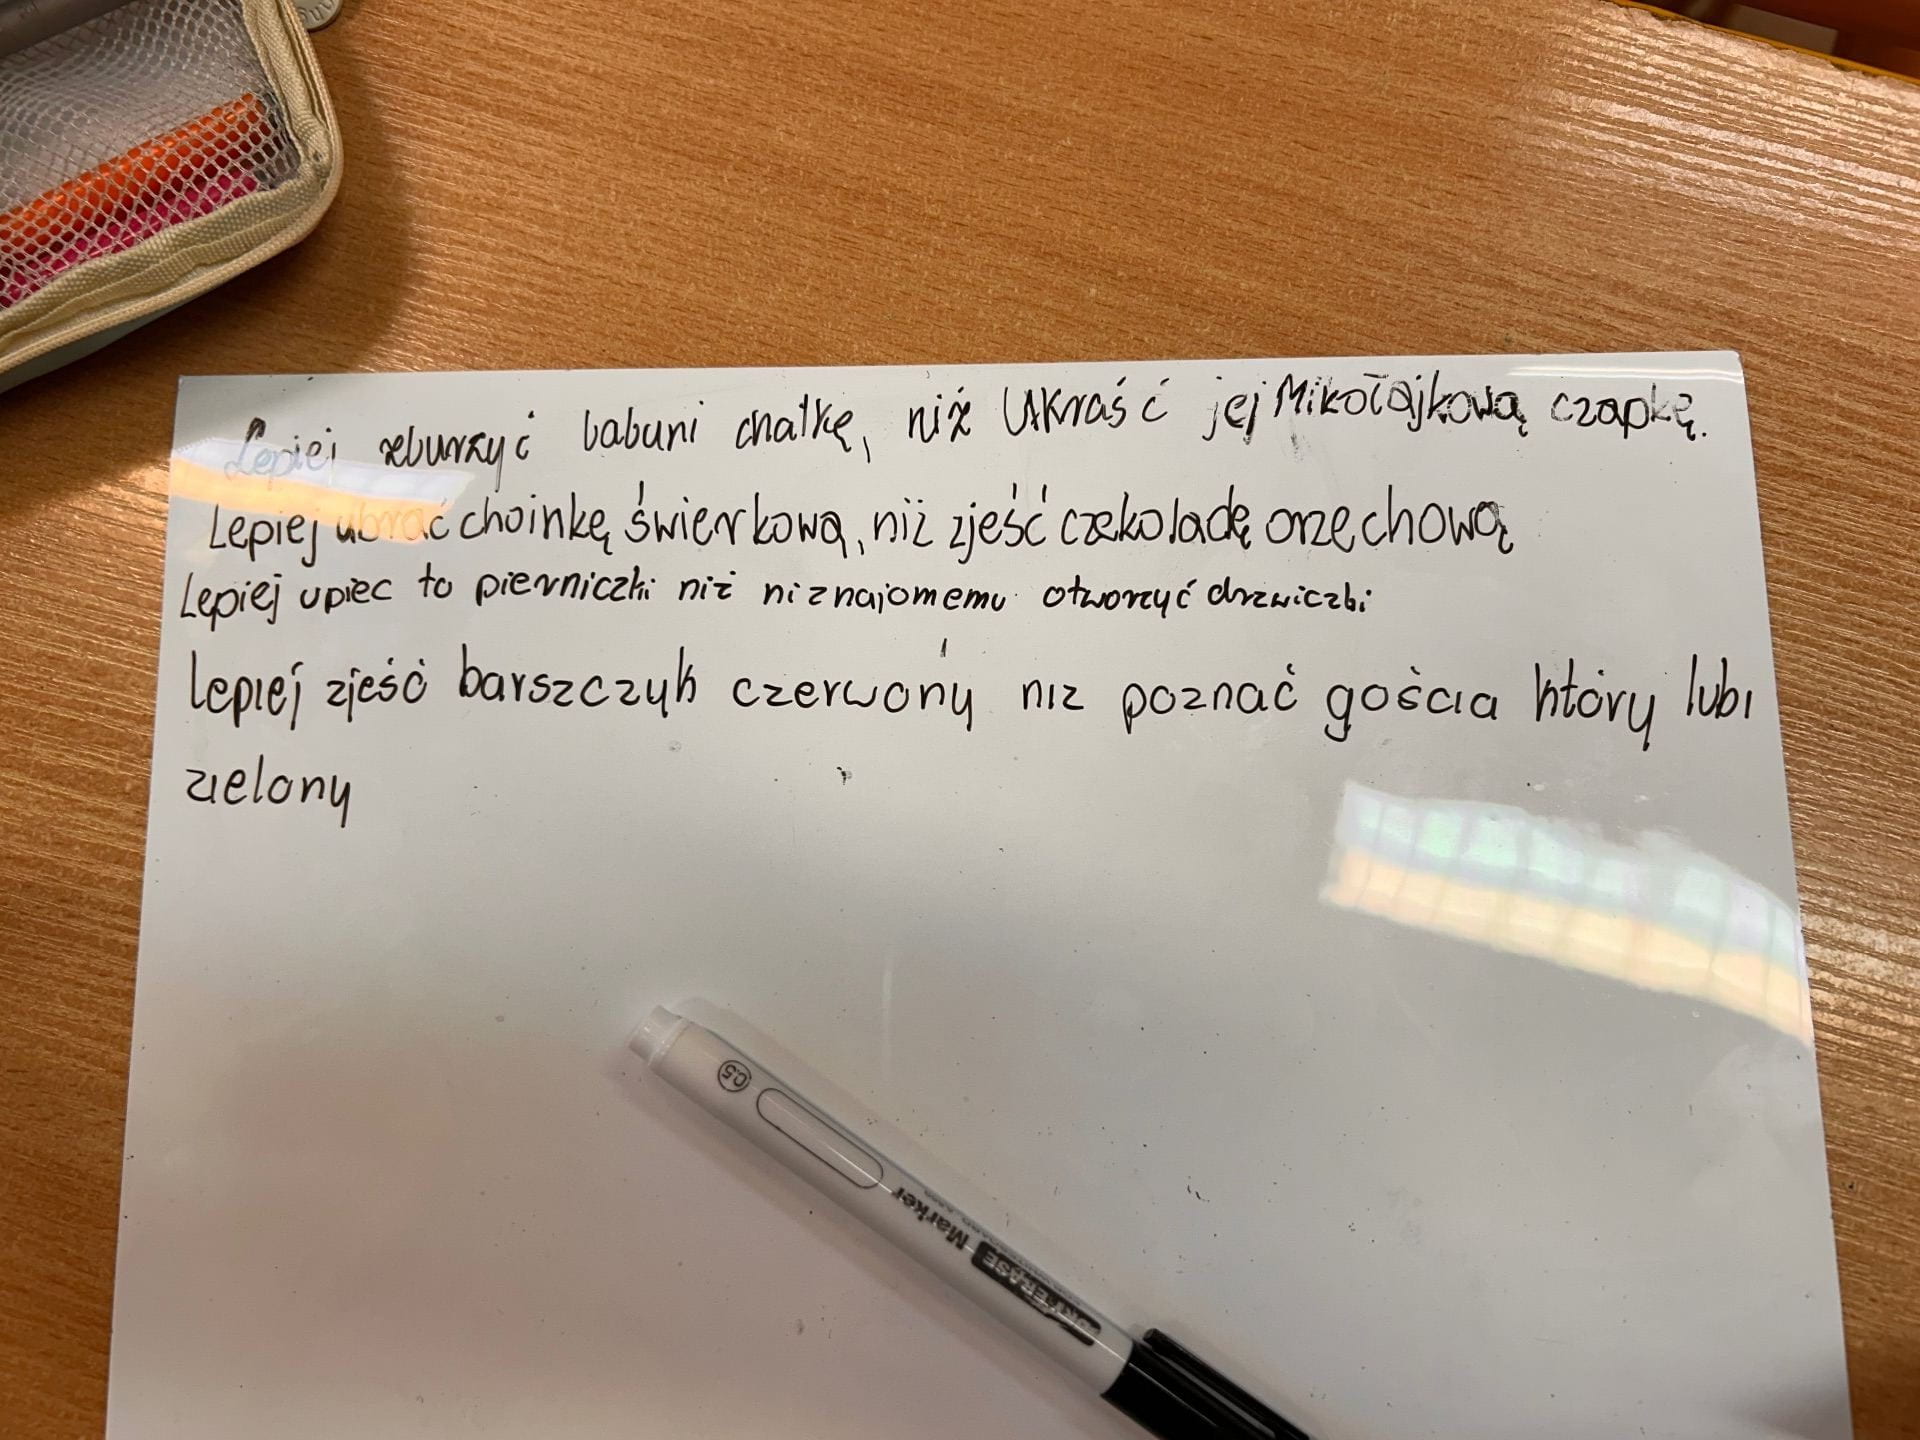 Lepiej zburzyć babuni chatkę, niż Ukraść jej Mikołajkową czapkę.
Lepiej ubrać choinkę świerkową, niż zjeść czekoladę orzechową
Lepiej upiec to pierniczki niż nieznajomemu otworzyć drzwiczki
Lepiej zjeść barszczyk czerwony niz poznać gościa który lubi
zielony
0.5
Marker